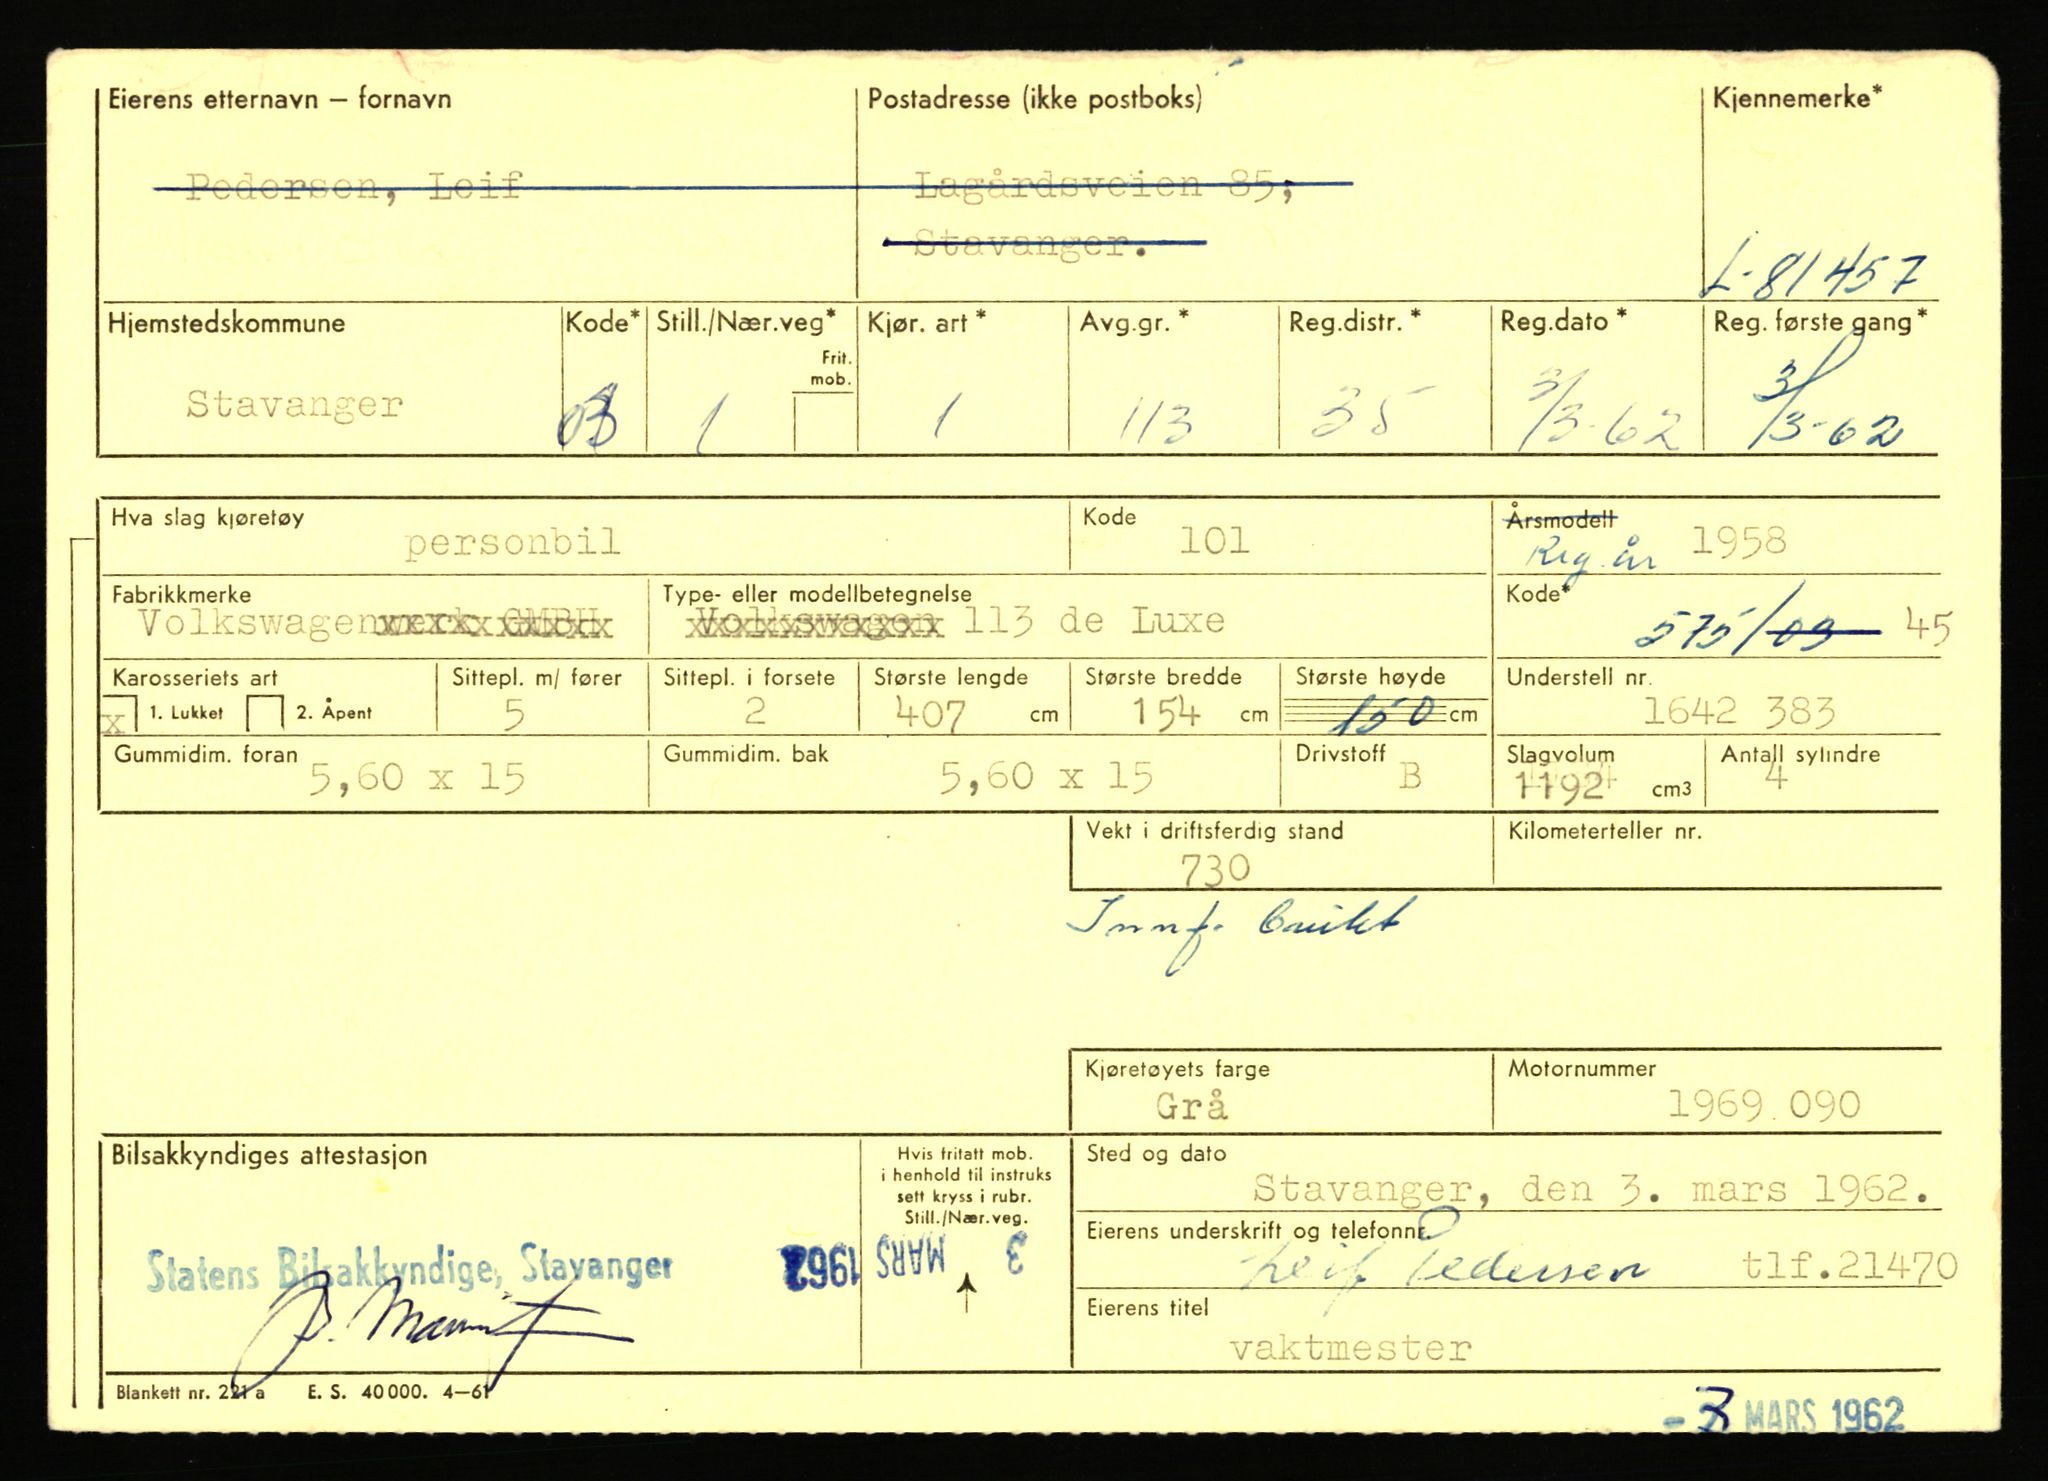 Eierens etternavn – fornavn
Pedersen, Leif
Postadresse (ikke postboks)
Lagårdsveien 85,
Stavanger.
Kjennemerke*
L-81457
Hjemstedskommune
Stavanger
Kode*
Still./Nær.veg*
Frit.
mob.
1
Kjør. art *
1
Avg.gr. *
113
Reg.distr. *
35
Reg.dato *
3/3-62
Reg. første gang*
3/3-62
Hva slag kjøretøy
personbil
Kode
101
Årsmodell
Reg. år 1958
Fabrikkmerke
Volkswagenwerk GMBH
Type- eller modellbetegnelse
Volkswagen 113 de Luxe
Kode*
575/03 45
Karosseriets art
x 1. Lukket 2. Åpent
Sittepl. m/ fører
5
Sittepl. i forsete
2
Største lengde
407 cm
Største bredde
154 cm
Største høyde
150 cm
Understell nr.
1642 383
Gummidim. foran
5,60 x 15
Gummidim. bak
5,60 x 15
Drivstoff
B
Slagvolum
1192 cm3
Antall sylindre
4
Vekt i driftsferdig stand
730
Kilometerteller nr.
Innf.
Kjøretøyets farge
Grå
Motornummer
1969 090
Bilsakkyndiges attestasjon
Statens Bilsakkyndige, Stavanger
Hvis fritatt mob.
i henhold til instruks
sett kryss i rubr.
Still./Nær.veg.
3 MARS 1962
Sted og dato
Stavanger, den 3. mars 1962.
Eierens underskrift og telefonnr.
Leif Pedersen tlf.21470
Eierens titel
vaktmester
Blankett nr. 221 a E. S. 40 000. 4–61
- 3 MARS 1962